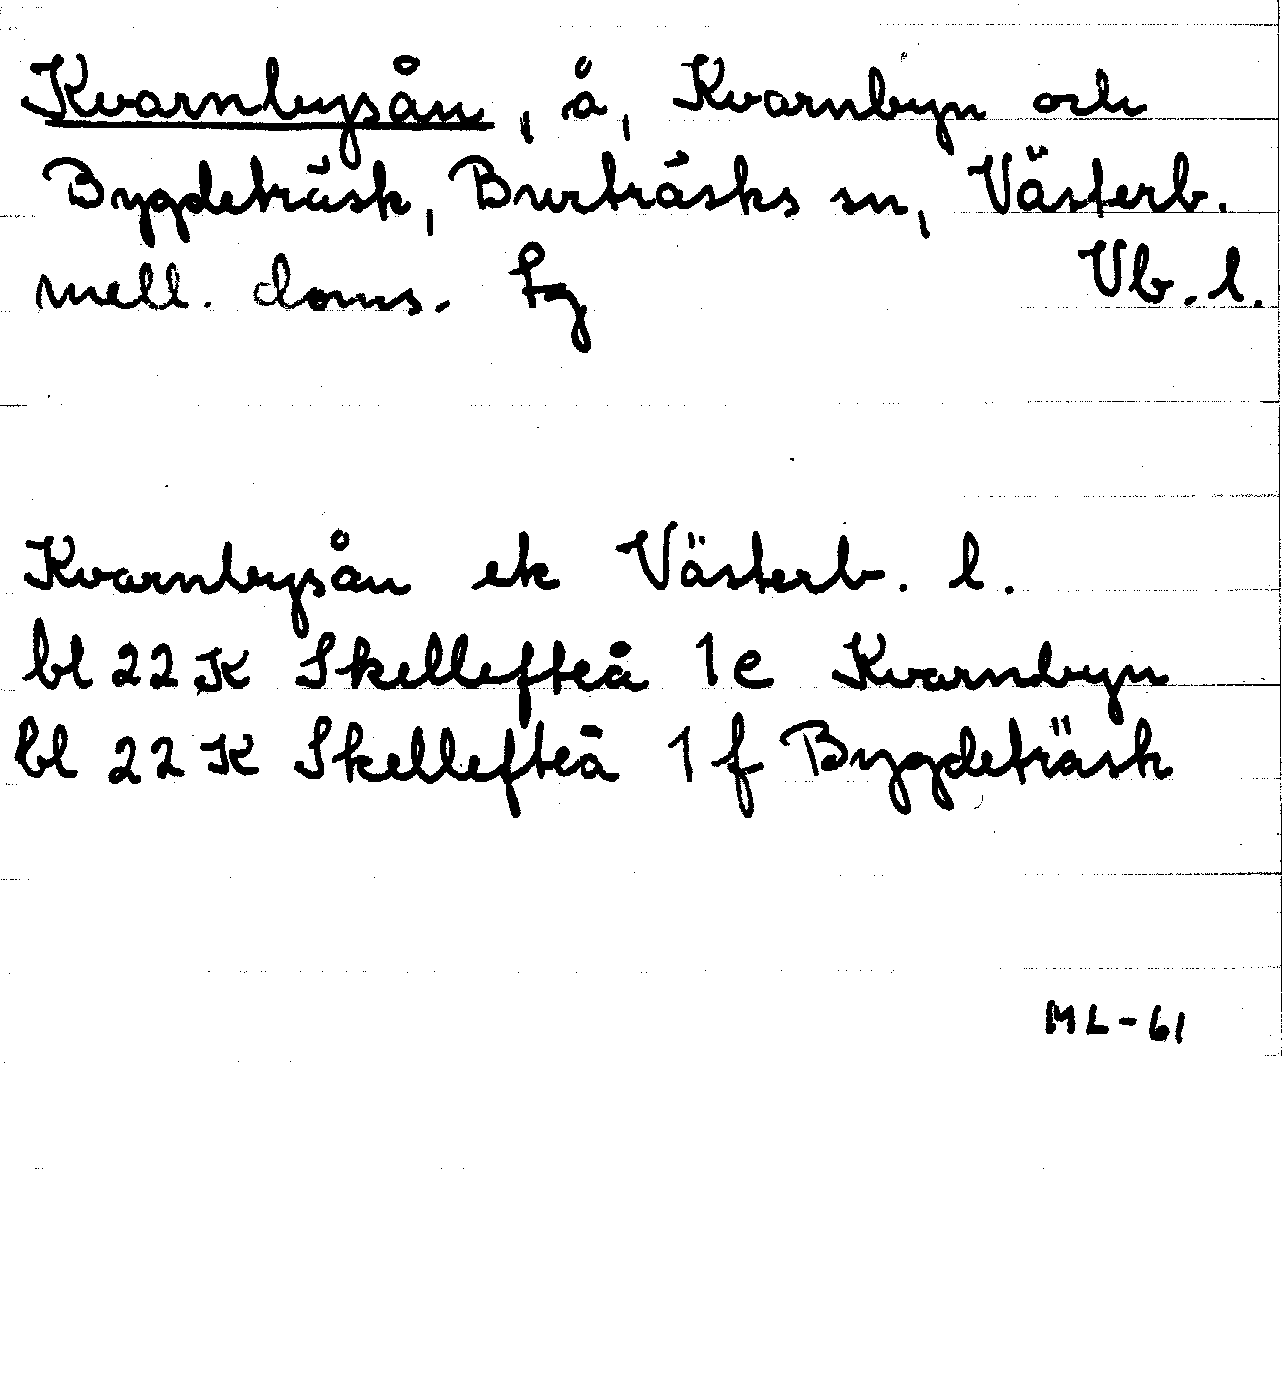 Kvarnbysån, å, Kvarnbyn och
Bygdeträsk, Burträsks sn, Västerb.
mell. doms. tg Vb. l.
Kvarnbysån ek Västerb. l.
bl 22 K Skellefteå 1e Kvarnbyn
bl 22 K Skellefteå 1f Bygdeträsk
ML-61